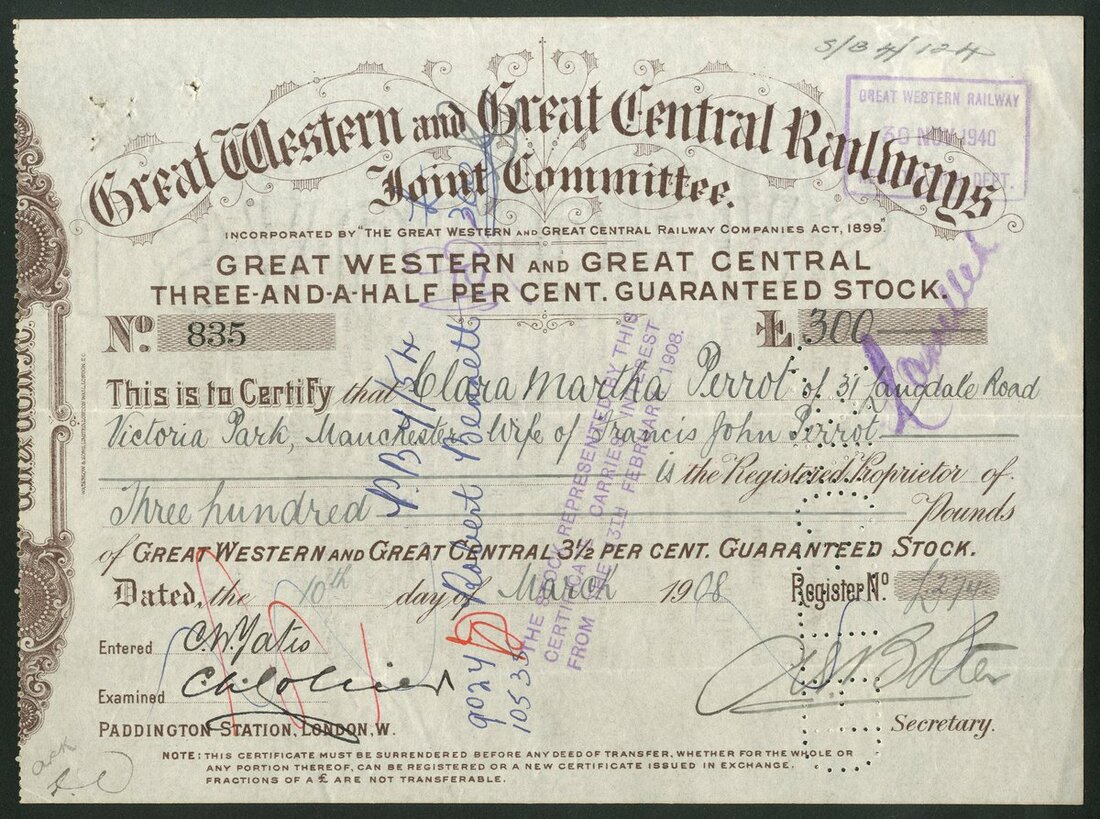 S/B 4/124
GREAT WESTERN RAILWAY
30 NOV 1940
DEPT.
Great Western and Great Central Railways
Joint Committee.
INCORPORATED BY "THE GREAT WESTERN AND GREAT CENTRAL RAILWAY COMPANIES ACT, 1899".
GREAT WESTERN AND GREAT CENTRAL
THREE-AND-A-HALF PER CENT. GUARANTEED STOCK.
No. 835 £ 300
Cancelled
This is to Certify that Clara Martha Perrot of 31 Langdale Road
Victoria Park, Manchester, Wife of Francis John Perrot
is the Registered Proprietor of
Three hundred Pounds
of GREAT WESTERN AND GREAT CENTRAL 3½ PER CENT. GUARANTEED STOCK.
Dated, the 10th day of March 1908 Register No.
Entered C.W. Yates
Examined
PADDINGTON STATION, LONDON, W.
Secretary.
NOTE: THIS CERTIFICATE MUST BE SURRENDERED BEFORE ANY DEED OF TRANSFER, WHETHER FOR THE WHOLE OR
ANY PORTION THEREOF, CAN BE REGISTERED OR A NEW CERTIFICATE ISSUED IN EXCHANGE.
FRACTIONS OF A £ ARE NOT TRANSFERABLE.
P.B 4/154
Robert Bennett
9024
10533
THE STOCK REPRESENTED BY THIS
CERTIFICATE CARRIES INTEREST
FROM THE 13TH FEBRUARY 1908.